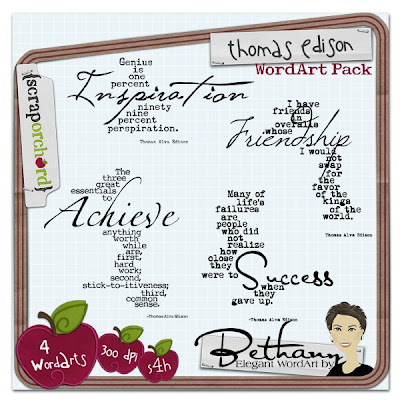 thomas edison
WordArt Pack
{scraporchard}
Genius
is
one
percent
Inspiration
ninety
nine
percent
perspiration.
Thomas Alva Edison
I have
friends
in
overalls
whose
Friendship
I would
not
swap
for
the
favor
of the
kings
of the
world.
Thomas Alva Edison
The
three
great
essentials
to
Achieve
anything
worth
while
are,
first,
hard
work;
second,
stick-to-itiveness;
third,
common
sense.
-Thomas Alva Edison
Many of
life's
failures
are
people
who did
not
realize
how
close
they
were to
Success
when
they
gave up.
-Thomas Alva Edison
4
WordArts
300 dpi
s4h
Bethany
Elegant WordArt by